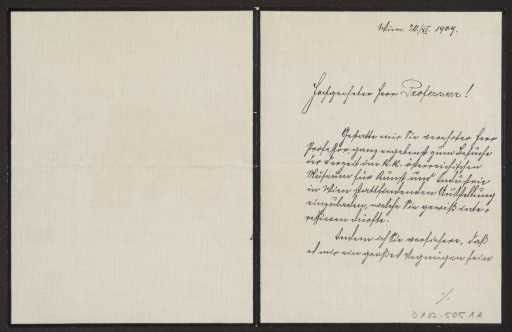 Wien 20./VI. 1909.
Hochgeehrter Herr Professor!
Gestatte mir Sie verehrter Herr
Professor ganz ergebenst zum Besuche
der derzeit im k. k. österreichischen
Museum für Kunst und Industrie
in Wien stattfindenden Ausstellung
einzuladen, welche Sie gewiß inte-
ressieren dürfte.
Indem ich Sie versichere, daß
es mir ein großes Vergnügen sein
./.